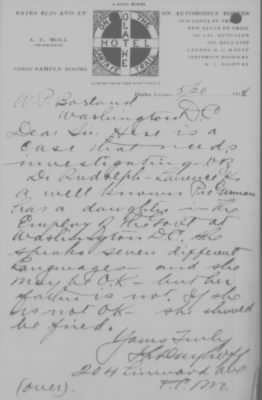 A GOOD HOTEL
RATES $2.25 AND UP
ON AUTOMOBILE ROUTES
ON THE
OLATHE
HOTEL
SANTA FE TRAIL
OLD SANTA FE TRAIL
NEW SANTA FE TRAIL
KANSAS
JEFFERSON HIGHWAY
A. E. MOLL
PROPRIETOR
GOOD SAMPLE ROOMS
Olathe, Kansas, 5/20 1918
W. P. Borland
Washington D.C
Dear Sir Here is a
Case that needs
investigating - OK
Dr Rudolph - Lawrence Ks
a well known Pro German
has a daughter in the
Employ of the Govt at
Washington D.C. she
speaks seven different
Languages - and she
may be O.K - but her
father is not. If she
is not OK - she should
be fired.
Yours Truly
204 Linwood Ave
K.C. Mo.
(over).